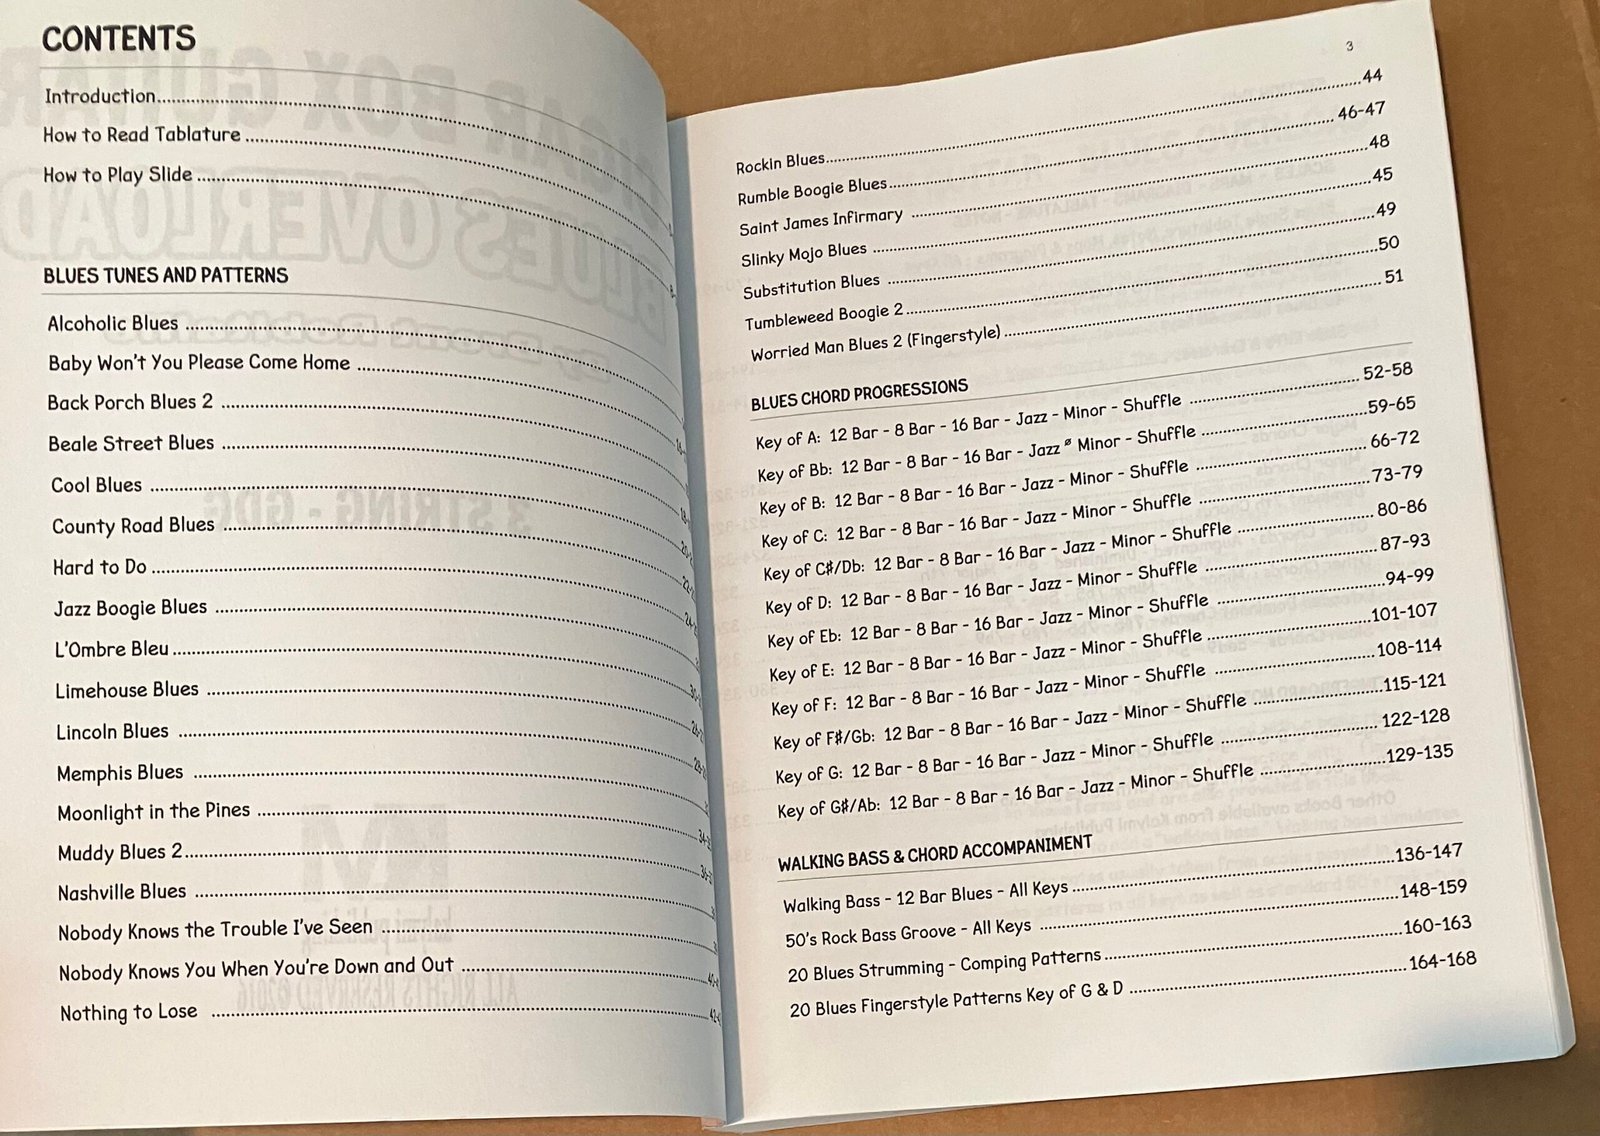 CONTENTS
Introduction
How to Read Tablature
How to Play Slide
BLUES TUNES AND PATTERNS
Alcoholic Blues
Baby Won't You Please Come Home
Back Porch Blues 2
Beale Street Blues
Cool Blues
County Road Blues
Hard to Do
Jazz Boogie Blues
L'Ombre Bleu
Limehouse Blues
Lincoln Blues
Memphis Blues
Moonlight in the Pines
Muddy Blues 2
Nashville Blues
Nobody Knows the Trouble I've Seen
Nobody Knows You When You're Down and Out
Nothing to Lose
3
Rockin Blues 44
Rumble Boogie Blues 46-47
Saint James Infirmary 48
Slinky Mojo Blues 45
Substitution Blues 49
Tumbleweed Boogie 2 50
Worried Man Blues 2 (Fingerstyle) 51
BLUES CHORD PROGRESSIONS
Key of A: 12 Bar - 8 Bar - 16 Bar - Jazz - Minor - Shuffle 52-58
Key of Bb: 12 Bar - 8 Bar - 16 Bar - Jazz - Minor - Shuffle 59-65
Key of B: 12 Bar - 8 Bar - 16 Bar - Jazz - Minor - Shuffle 66-72
Key of C: 12 Bar - 8 Bar - 16 Bar - Jazz - Minor - Shuffle 73-79
Key of C#/Db: 12 Bar - 8 Bar - 16 Bar - Jazz - Minor - Shuffle 80-86
Key of D: 12 Bar - 8 Bar - 16 Bar - Jazz - Minor - Shuffle 87-93
Key of Eb: 12 Bar - 8 Bar - 16 Bar - Jazz - Minor - Shuffle 94-99
Key of E: 12 Bar - 8 Bar - 16 Bar - Jazz - Minor - Shuffle 101-107
Key of F: 12 Bar - 8 Bar - 16 Bar - Jazz - Minor - Shuffle 108-114
Key of F#/Gb: 12 Bar - 8 Bar - 16 Bar - Jazz - Minor - Shuffle 115-121
Key of G: 12 Bar - 8 Bar - 16 Bar - Jazz - Minor - Shuffle 122-128
Key of G#/Ab: 12 Bar - 8 Bar - 16 Bar - Jazz - Minor - Shuffle 129-135
WALKING BASS & CHORD ACCOMPANIMENT
Walking Bass - 12 Bar Blues - All Keys 136-147
50's Rock Bass Groove - All Keys 148-159
20 Blues Strumming - Comping Patterns 160-163
20 Blues Fingerstyle Patterns Key of G & D 164-168